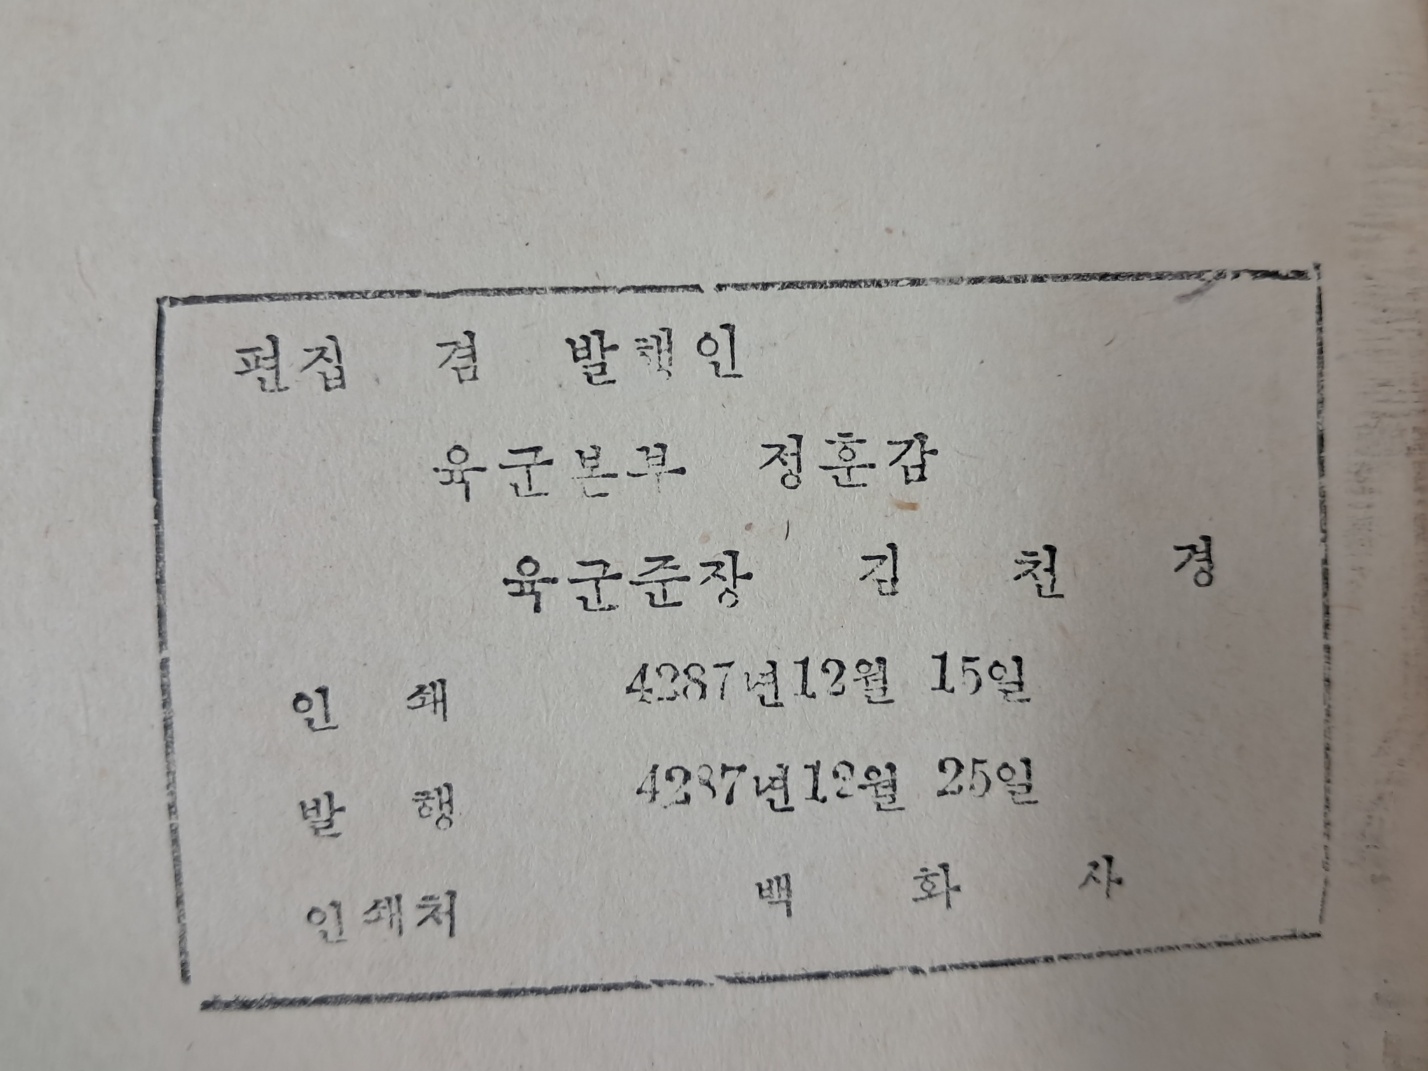 편집 겸 발행인
육군본부 정훈감
육군준장 김 천 경
인 쇄 4287년12월 15일
발 행 4287년12월 25일
인쇄처 백 화 사